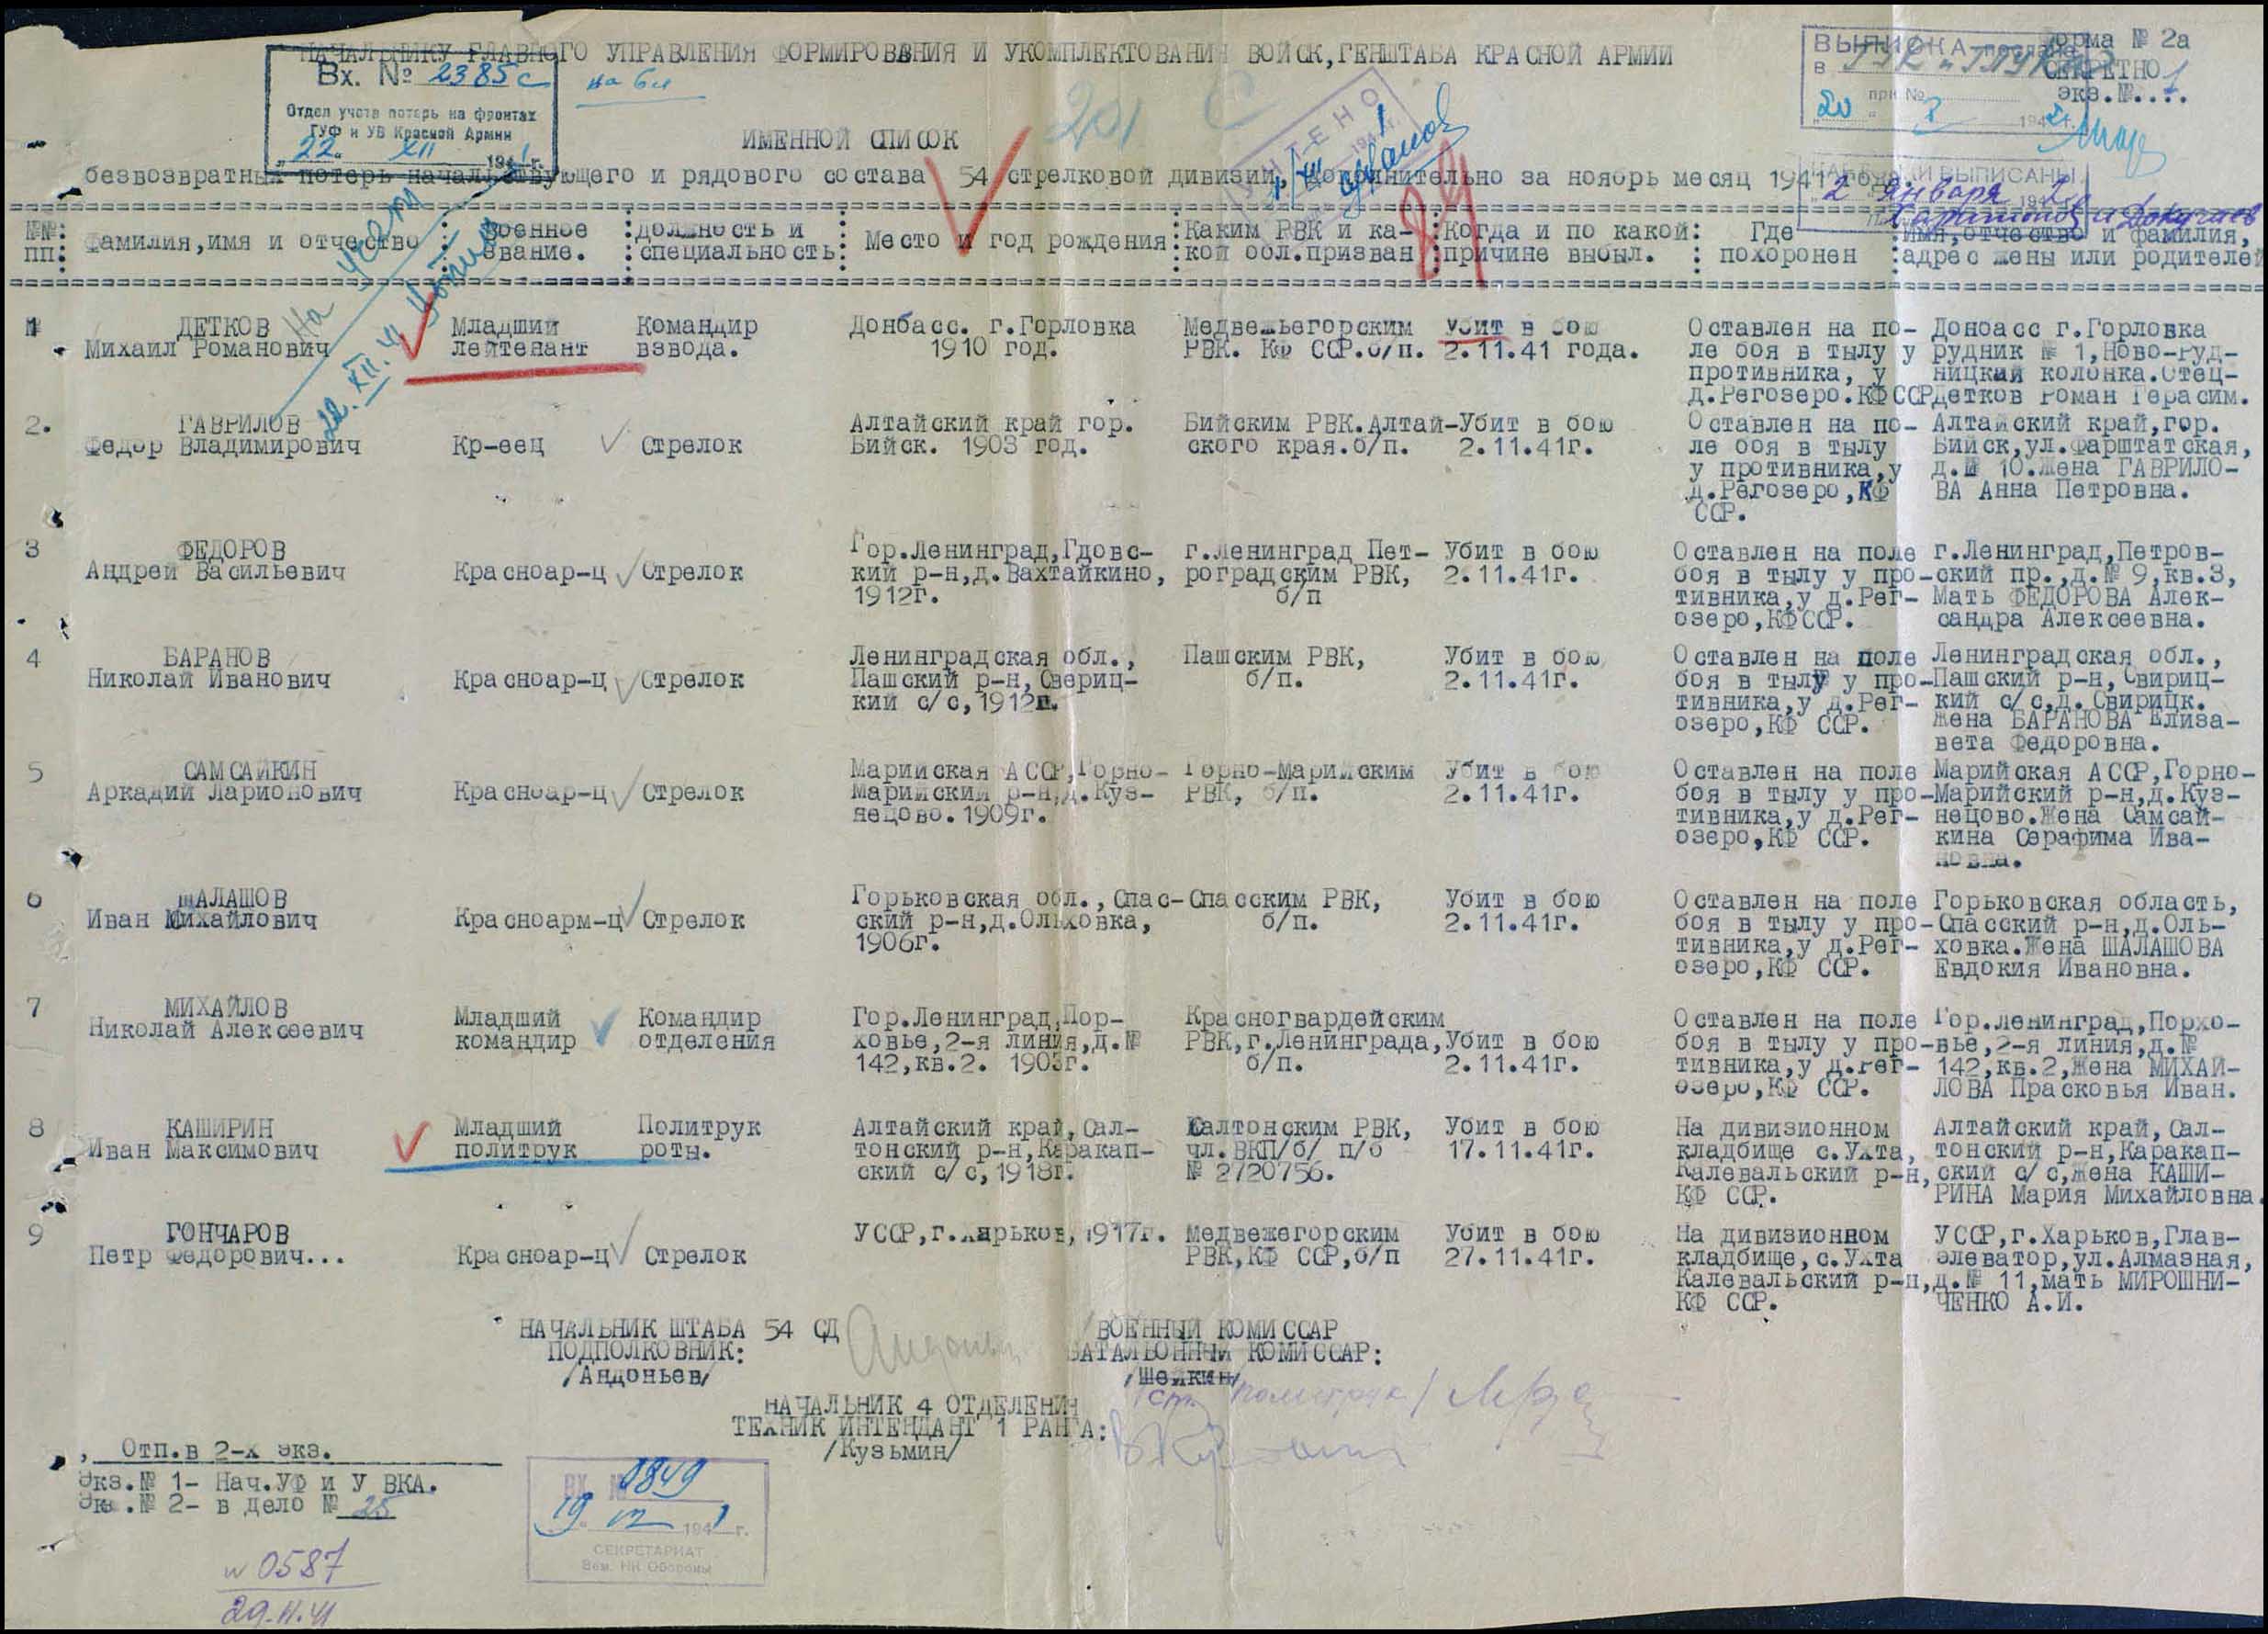 НАЧАЛЬНИКУ ГЛАВНОГО УПРАВЛЕНИЯ ФОРМИРОВАНИЯ И УКОМПЛЕКТОВАНИЯ ВОЙСК, ГЕНШТАБА КРАСНОЙ АРМИИ
Форма № 2а
СЕКРЕТНО
экз.№....1
Вх. № 2385с
Отдел учета потерь на фронтах
ГУФ и УВ Красной Армии
"22" XII 1941г.
ВЫПИСКА послана
в
при №
"20" 194 г.
УЧТЕНО
201
ИМЕННОЙ СПИСОК
безвозвратных потерь начальствующего и рядового состава 54 стрелковой дивизии, дополнительно за ноябрь месяц 1941 года
ВЫПИСАНЫ
2 января 1942
На учет
22.XII.41
84
№№ пп: Фамилия,имя и отчество : Военное звание. : должность и специальность : Место и год рождения : Каким РВК и какой обл.призван : Когда и по какой причине выбыл. : Где похоронен : имя,отчество и фамилия, адрес жены или родителей
1 ДЕТКОВ Младший Командир Донбасс. г.Горловка Медвежьегорским Убит в бою Оставлен на по- Донбасс г.Горловка
Михаил Романович лейтенант взвода. 1910 год. РВК. КФ ССР.б/п. 2.11.41 года. ле боя в тылу у рудник № 1,Ново-Руд-
противника, у ницкая колонка.Отец-
д.Регозеро.КФССР Детков Роман Герасим.
2. ГАВРИЛОВ Алтайский край гор. Бийским РВК.Алтай- Убит в бою Оставлен на по- Алтайский край,гор.
Федор Владимирович Кр-еец Стрелок Бийск. 1903 год. ского края.б/п. 2.11.41г. ле боя в тылу Бийск,ул.Фарштатская,
у противника,у д.№ 10.жена ГАВРИЛО-
д.Регозеро,КФ ВА Анна Петровна.
ССР.
3 ФЕДОРОВ Гор.Ленинград,Гдовс- г.Ленинград Пет- Убит в бою Оставлен на поле г.Ленинград,Петров-
Андрей Васильевич Красноар-ц Стрелок кий р-н,д.Вахтайкино, роградским РВК, 2.11.41г. боя в тылу у про- ский пр.,д.№ 9,кв.3,
1912г. б/п тивника,у д.Рег- Мать ФЕДОРОВА Алек-
озеро,КФССР. сандра Алексеевна.
4 БАРАНОВ Ленинградская обл., Пашским РВК, Убит в бою Оставлен на поле Ленинградская обл.,
Николай Иванович Красноар-ц Стрелок Пашский р-н,Свериц- б/п. 2.11.41г. боя в тылу у про- Пашский р-н,Свириц-
кий с/с,1912г. тивника,у д.Рег- кий с/с,д.Свирицк.
озеро,КФ ССР. жена БАРАНОВА Елиза-
вета Федоровна.
5 САМСАЙКИН Марийская АССР,Горно- Горно-Марийским Убит в бою Оставлен на поле Марийская АССР,Горно-
Аркадий Ларионович Красноар-ц Стрелок Марийский р-н,д.Куз- РВК, б/п. 2.11.41г. боя в тылу у про- Марийский р-н,д.Куз-
нецово.1909г. тивника,у д.Рег- нецово.Жена Самсай-
озеро,КФ ССР. кина Серафима Ива-
новна.
6 ШАЛАШОВ Горьковская обл.,Спас- Спасским РВК, Убит в бою Оставлен на поле Горьковская область,
Иван Михайлович Красноарм-ц Стрелок ский р-н,д.Ольховка, б/п. 2.11.41г. боя в тылу у про- Спасский р-н,д.Оль-
1906г. тивника,у д.Рег- ховка.Жена ШАЛАШОВА
озеро,КФ ССР. Евдокия Ивановна.
7 МИХАЙЛОВ Младший Командир Гор.Ленинград,Пор- Красногвардейским Оставлен на поле Гор.Ленинград,Порхо-
Николай Алексеевич командир отделения ховье,2-я линия,д.№ РВК,г.Ленинграда, Убит в бою боя в тылу у про- вье,2-я линия,д.№
142,кв.2. 1903г. б/п. 2.11.41г. тивника,у д.Рег- 142,кв.2,Жена МИХАЙ-
озеро,КФ ССР. ЛОВА Прасковья Иван.
8 КАШИРИН Младший Политрук Алтайский край,Сал- Салтонским РВК, Убит в бою На дивизионном Алтайский край,Сал-
Иван Максимович политрук роты. тонский р-н,Каракап- чл.ВКП/б/ п/б 17.11.41г. кладбище с.Ухта, тонский р-н,Каракап-
ский с/с,1918г. № 2720756. Калевальский р-н, ский с/с,жена КАШИ-
КФ ССР. РИНА Мария Михайловна.
9 ГОНЧАРОВ УССР,г.Харьков,1917г. Медвежегорским Убит в бою На дивизионном УССР,г.Харьков,Глав-
Петр Федорович... Красноар-ц Стрелок РВК,КФ ССР,б/п 27.11.41г. кладбище,с.Ухта элеватор,ул.Алмазная,
Калевальский р-н, д.№ 11,мать МИРОШНИ-
КФ ССР. ЧЕНКО А.И.
НАЧАЛЬНИК ШТАБА 54 СД ВОЕННЫЙ КОМИССАР
ПОДПОЛКОВНИК: БАТАЛЬОННЫЙ КОМИССАР:
/Андоньев/ /Шейкин/
ст. политрук/
НАЧАЛЬНИК 4 ОТДЕЛЕНИЯ
ТЕХНИК ИНТЕНДАНТ 1 РАНГА:
/Кузьмин/
Отп.в 2-х экз.
Экз.№ 1- Нач.УФ и У ВКА.
Экз.№ 2- в дело № 25
ВХ № 0849
"19" 12 1941г.
СЕКРЕТАРИАТ
Зам. НК Обороны
№ 0587
29.11.41